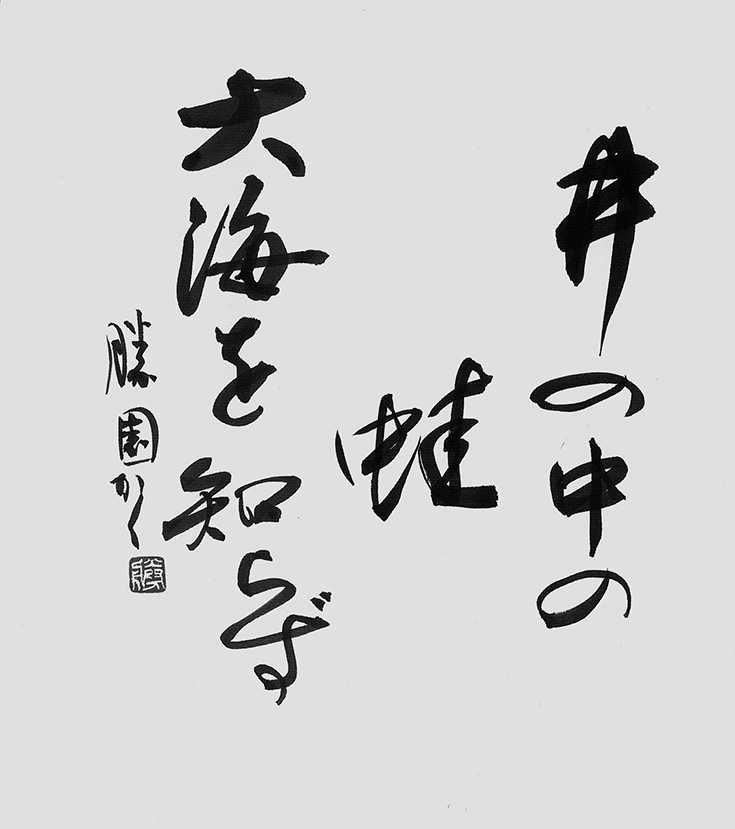 井の中の
蛙
大海を知らず
勝園かく